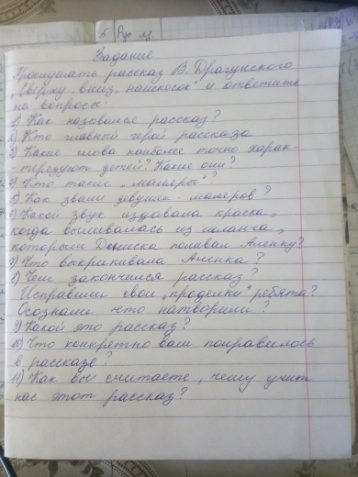 5 Рус яз
Задание
Прослушайте рассказ В. Драгунского
"Сверху вниз, наискосок" и ответьте
на вопросы:
1) Как называется рассказ?
2) Кто главный герой рассказа
3) Какие слова наиболее точно харак-
теризуют детей? Какие они?
4) Кто такие "маляры"?
5) Как звали девушек-маляров?
6) Какой звук издавала краска,
когда выливалась из шланга,
которым Дениска поливал Аленку?
7) Что выкрикивала Аленка?
8) Чем закончился рассказ?
Исправили свои "проделки" ребята?
Осознали что натворили?
9) Какой это рассказ?
10) Что конкретно вам понравилось
в рассказе?
11) Как вы считаете, чему учит
нас этот рассказ?